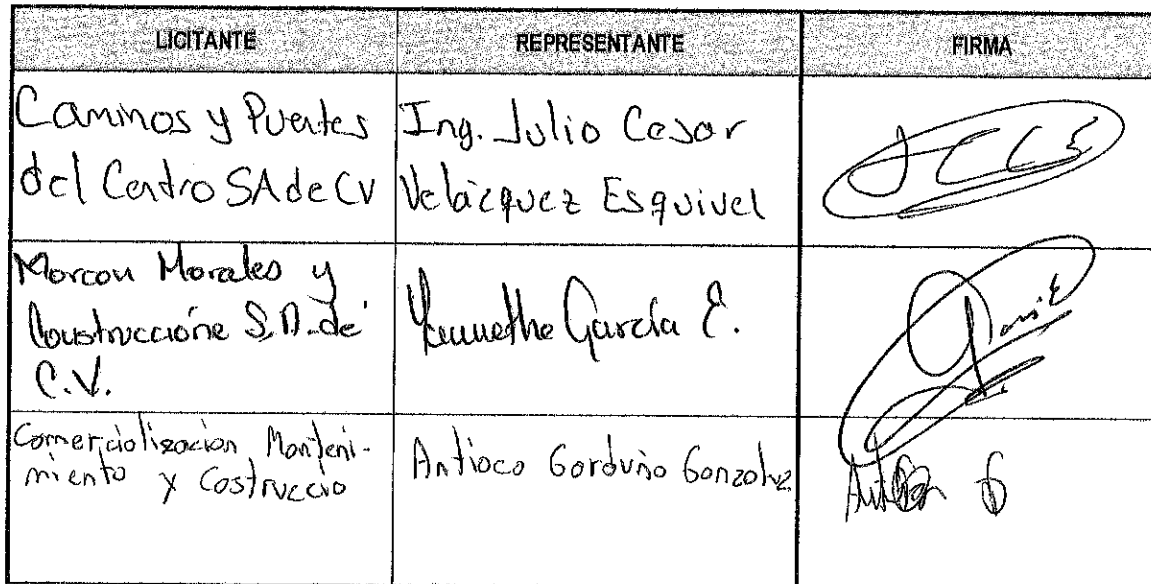 LICITANTE REPRESENTANTE FIRMA
Caminos y Puentes
del Centro SA de CV
Ing. Julio Cesar
Velázquez Esquivel
Morcon Morales y
Construccione S.A. de
C.V.
García E.
Comercialización, Manteni-
miento y Costruccio
Antioco Garduño Gonzalez